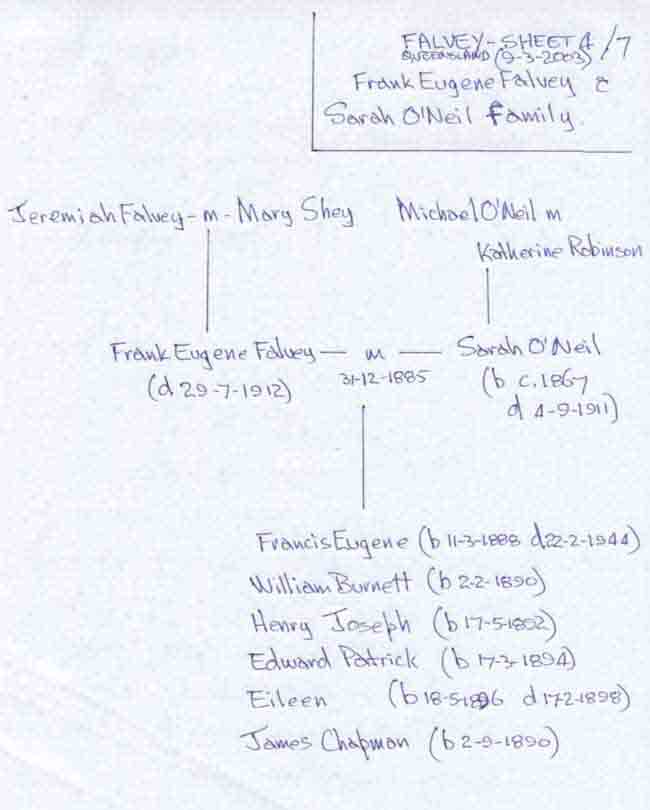 FALVEY-SHEET 4/7
QUEENSLAND (9-3-2003)
Frank Eugene Falvey &
Sarah O'Neil Family.
Jeremiah Falvey - m - Mary Shey Michael O'Neil m
Katherine Robinson
Frank Eugene Falvey — m — Sarah O'Neil
(d 29-7-1912) 31-12-1885 (b c.1867
d 4-9-1911)
Francis Eugene (b 11-3-1888 d 22-2-1944)
William Burnett (b 2-2-1890)
Henry Joseph (b 17-5-1892)
Edward Patrick (b 17-3-1894)
Eileen (b 18-5-1896 d 17-2-1898)
James Chapman (b 2-9-1890)